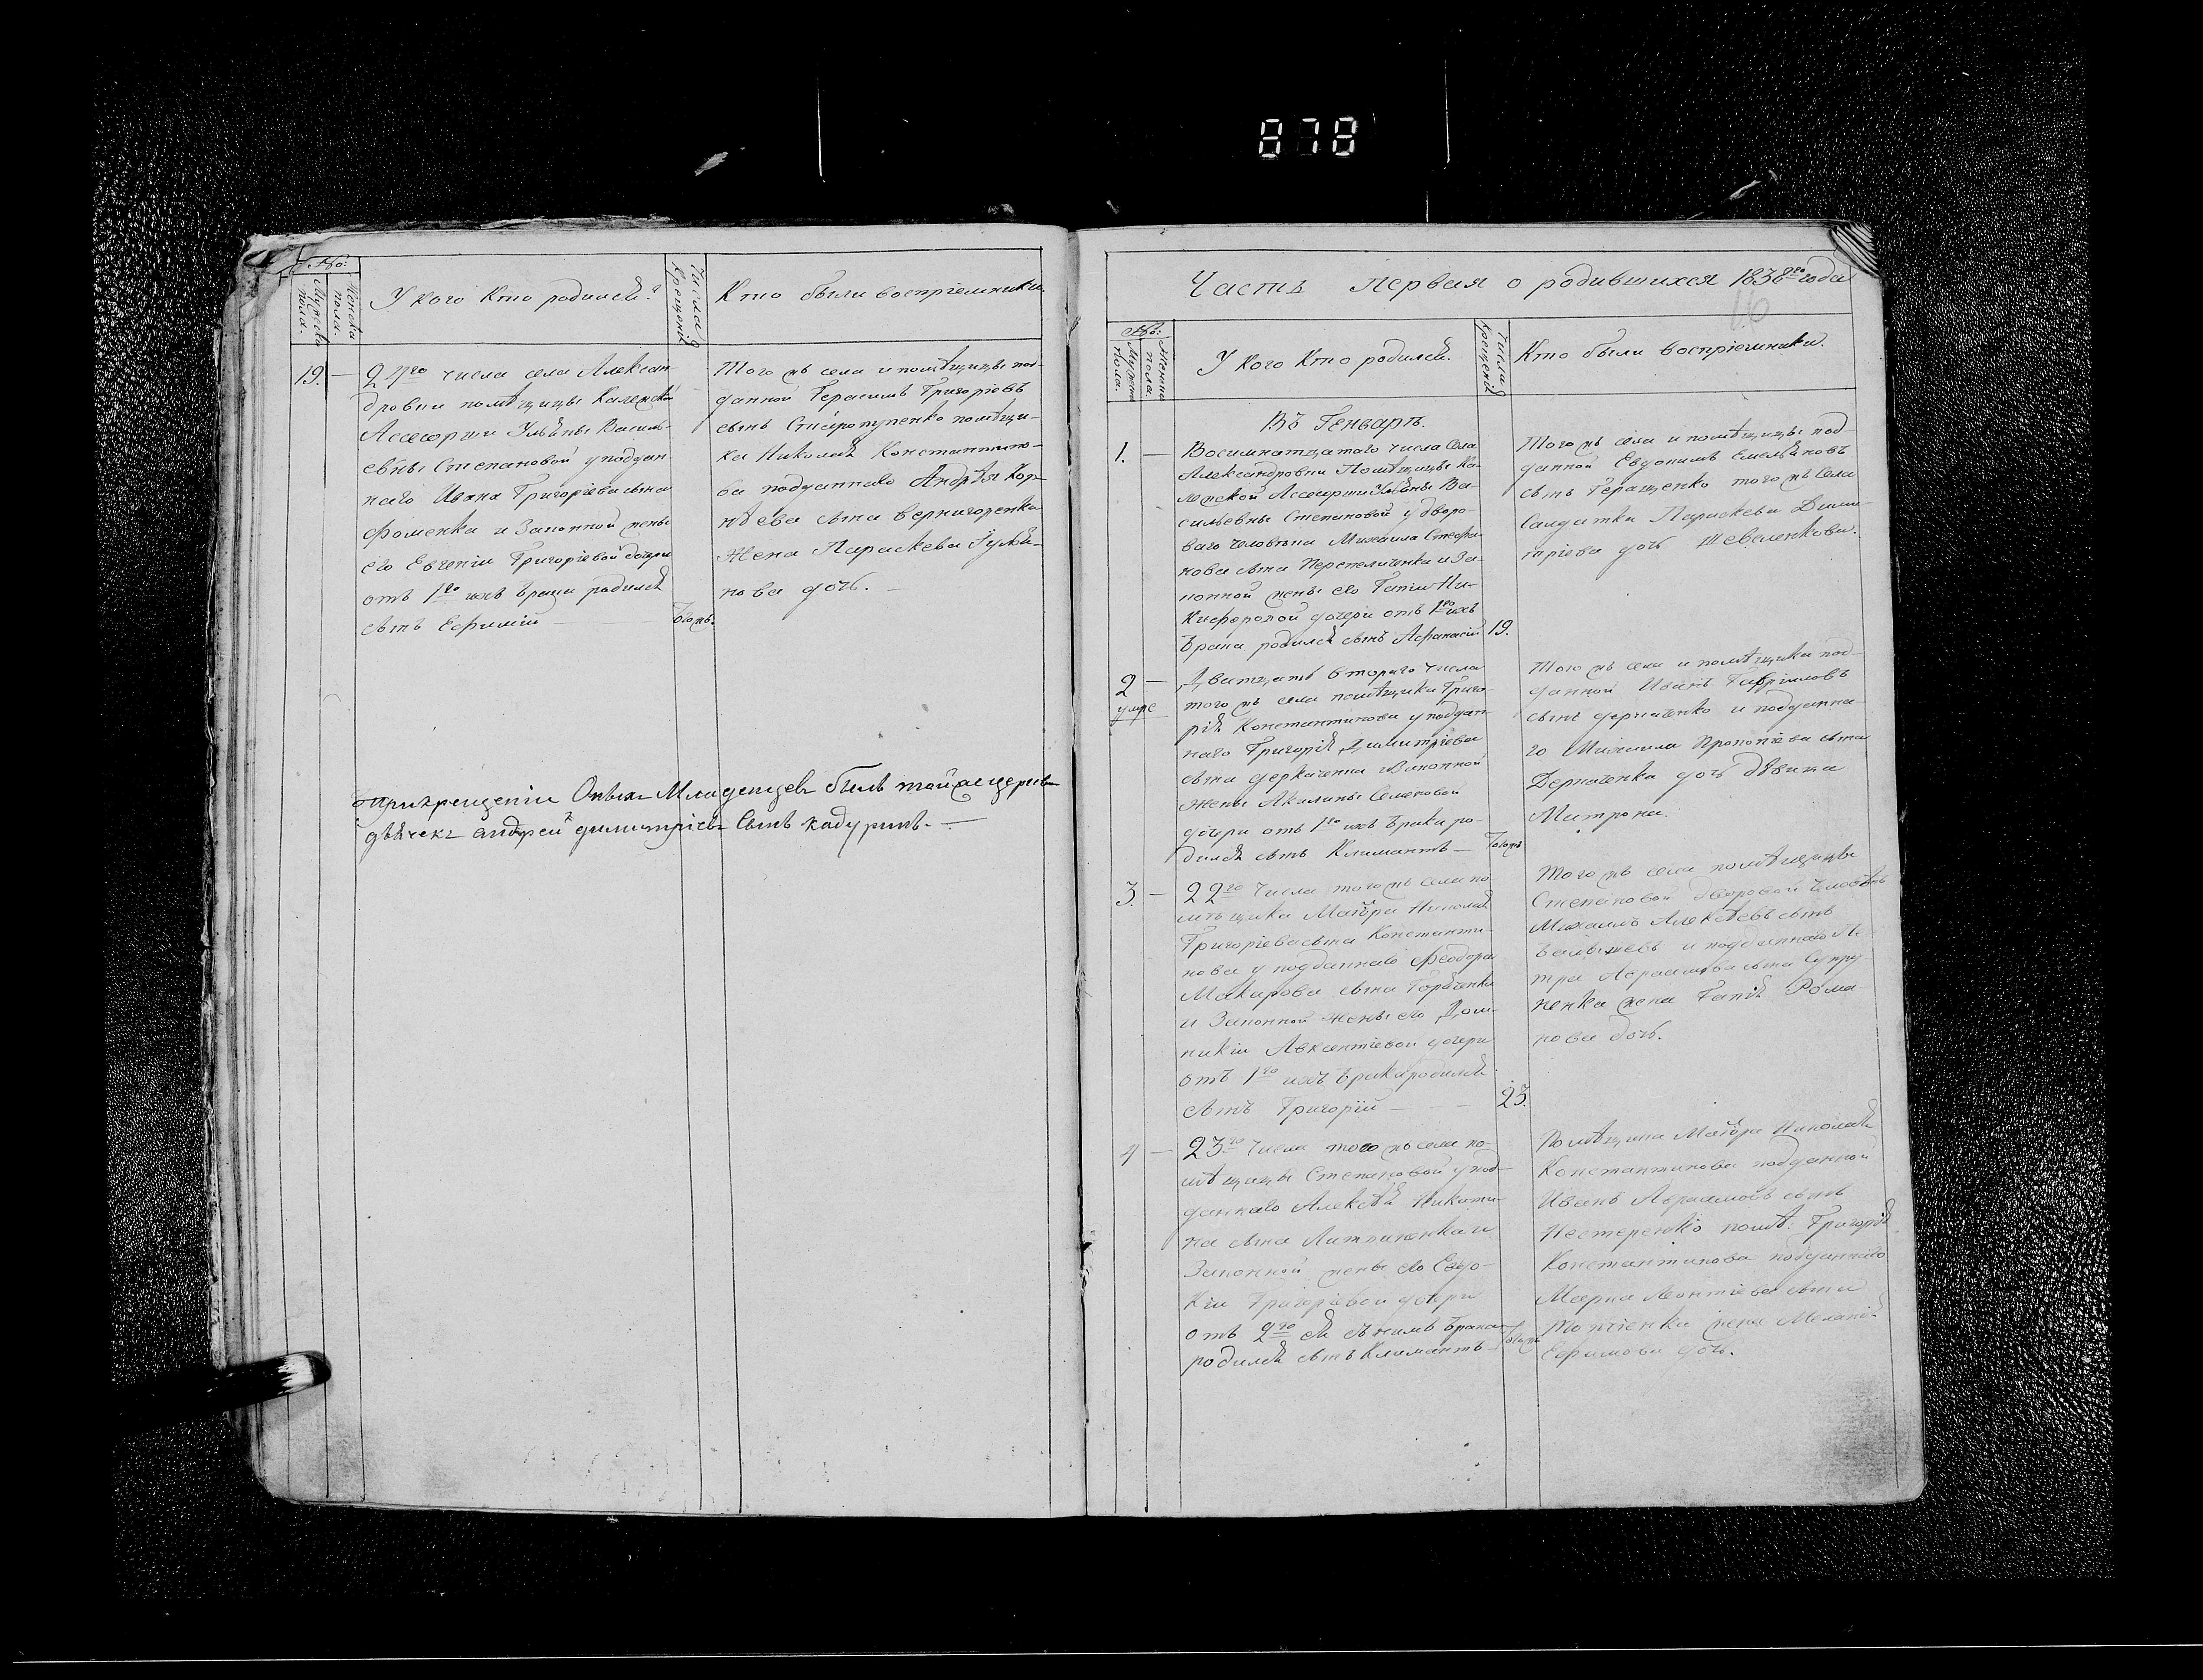 878
№:
Мужеска пола.
Женска пола.
У кого Кто родился?
Числа Крещенія
Кто были воспріемники.
19. —
27го числа села Алексан-
дровки помѣщицы Калежской
Ассесорши Ульяны Василь-
евны Степановой у поддан-
наго Ивана Григоріева сына
Фоменка и Законной жены
его Евгеніи Григоріевой дочери
отъ 1го ихъ брака родился
сынъ Ефимій —
Тогожъ.
Того жъ села и помѣщицы под-
данной Герасимъ Григоріевъ
сынъ помѣщи-
ка Николая Константино-
ва подданнаго Андрея Кор-
нѣева сына Вернигоренка
Жена Параскева
нова дочь. —
При крещеніи Оныхъ Младенцевъ былъ той же церкви
дьячекъ Андрей Димитріевъ Сынъ Кадуринъ. —
Часть первая о родившихся 1838го года
№:
Мужеска пола.
Женска пола.
У кого Кто родился.
Числа Крещенія
Кто были воспріемники.
Въ Генварѣ.
1. —
Восимнатцатаго числа Села
Александровки Помѣщицы Ка-
лежской Ассесорши Ульяны Ва-
сильевны Степановой у дворо-
ваго человѣка Михаила Стефа-
нова сына Перепеличенка и За-
конной жены его Гапіи Ни-
кифоровой дочери отъ 1го ихъ
брака родился сынъ Афанасій
19.
Того жъ села и помѣщицы под-
данной Евдокимъ Емельяновъ
сынъ Геращенко того жъ Села
Салдатка Параскева Дими-
тріева дочь Шевеленкова.
2 —
умре
Дватцать втораго числа
того жъ села помѣщика Григо-
рія Константинова у поддан-
наго Григорія Димитріева
сына Деркаченка и Законной
Жены Акилины Семеновой
дочери отъ 1го ихъ брака ро-
дился сынъ Климантъ —
Тогожъ
Того жъ села и помѣщика под-
данной Иванъ Гавриловъ
сынъ Деркаченко и подданна-
го Михаила Прокопіева сына
Деркаченка дочь дѣвица
Митрона.
3. —
22го числа того жъ села по-
мѣщика Маіора Николая
Григоріева сына Константи-
нова у подданнаго Феодора
Макарова сына Горбченка
и Законной Жены его Дом-
никіи Авксентіевой дочери
отъ 1го ихъ брака родился
Сынъ Григорій — —
23.
Того жъ села помѣщицы
Степановой дворовой человѣкъ
Михаилъ Алексѣевъ сынъ
и подданнаго
сына
ненка жена Гапія Рома-
нова дочь.
4 —
23го числа того жъ села по-
мѣщицы Степановой у под-
даннаго Алексѣя Никити-
на сына Литвиненка и
Законной жены его Евдо-
кіи Григоріевой дочери
отъ 2го ея съ нимъ брака
родился сынъ Климантъ
Тогожъ
Помѣщика Маіора Николая
Константинова подданной
Иванъ Авраамовъ сынъ
Нестеренко помѣ: Григорія
Константинова подданнаго
Марка Леонтіева сына
жена Меланія
Ефимова дочь.